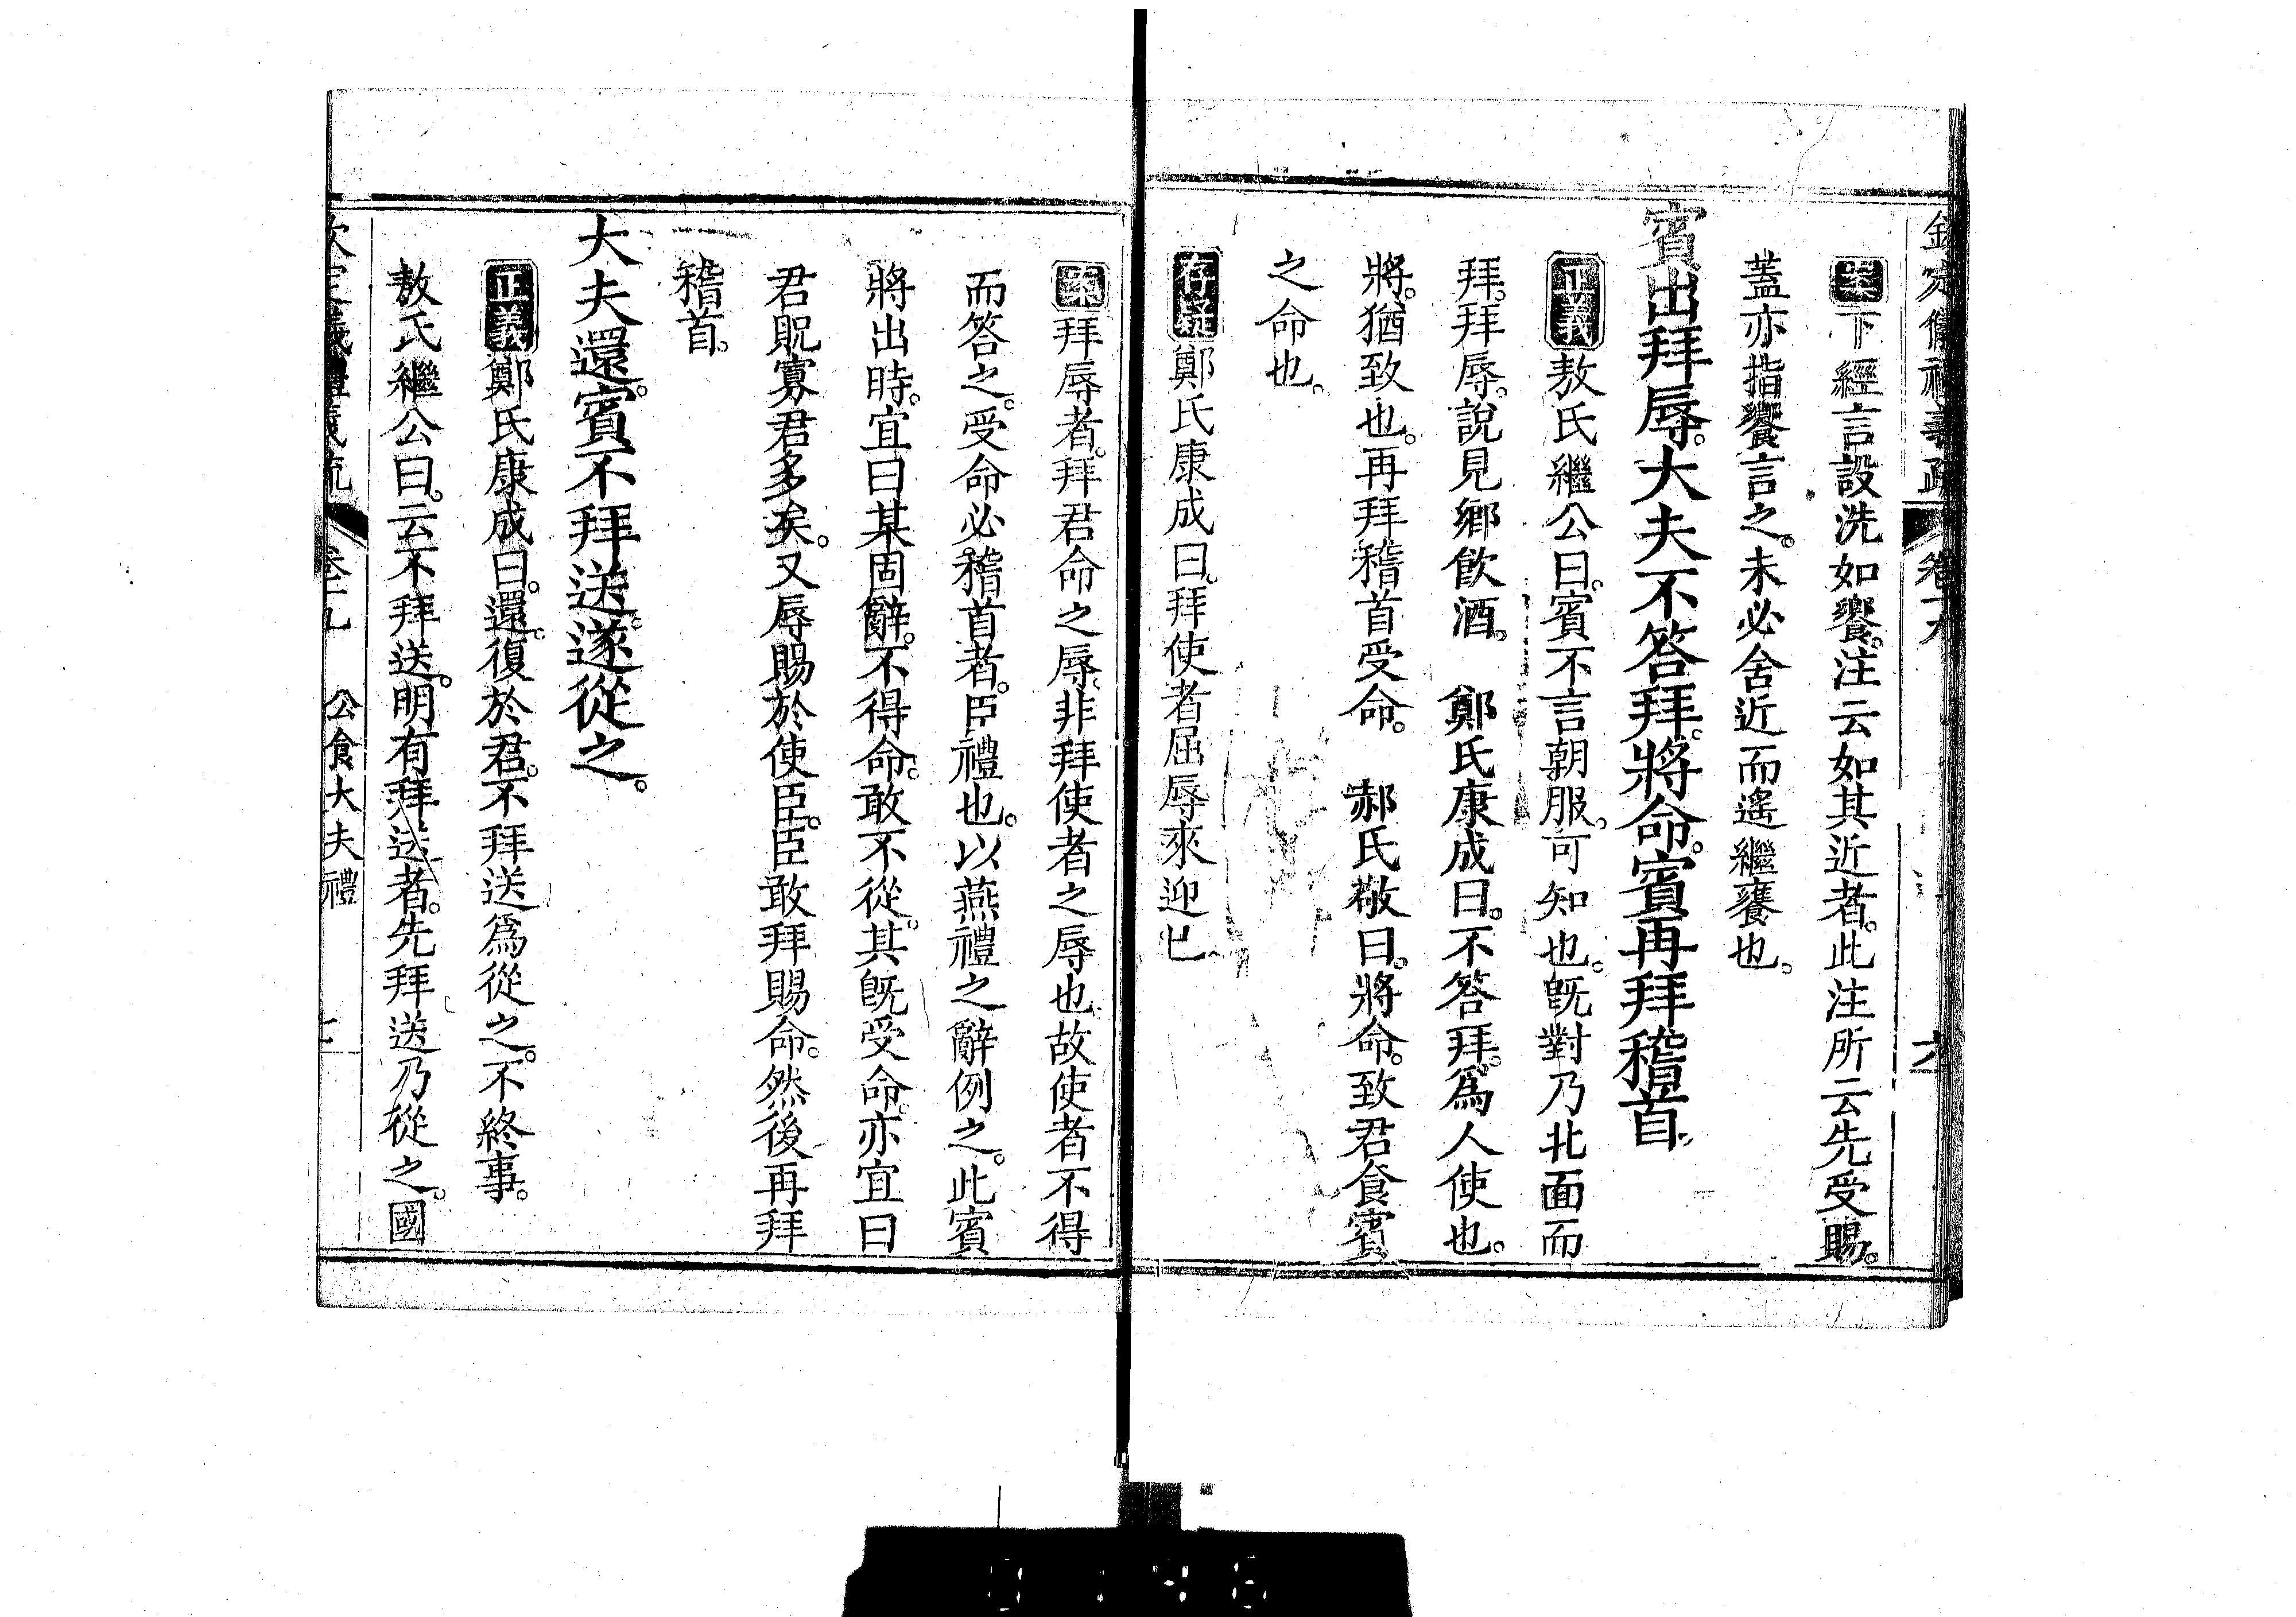 欽定儀禮義疏 卷十九 六
案下經言設洗如饗。注云如其近者。此注所云先受賜。
蓋亦指饗言之。未必舍近而遙繼饔也。
賓出拜辱。大夫不答拜。將命。賓再拜稽首。
正義敖氏繼公曰。賓不言朝服。可知也。旣對乃北面而
拜。拜辱。說見鄉飲酒。 鄭氏康成曰。不答拜。爲人使也。
將。猶致也。再拜稽首受命。 郝氏敬曰。將命。致君食賓
之命也。
存疑鄭氏康成曰。拜使者屈辱來迎已。
案拜辱者。拜君命之辱。非拜使者之辱也。故使者不得
而答之。受命必稽首者。臣禮也。以燕禮之辭例之。此賓
將出時。宜曰某固辭。不得命。敢不從。其旣受命。亦宜曰
君貺寡君多矣。又辱賜於使臣。臣敢拜賜命。然後再拜
稽首。
大夫還。賓不拜送。遂從之。
正義鄭氏康成曰。還。復於君。不拜送爲從之。不終事。
敖氏繼公曰。云不拜送。明有拜送者。先拜送乃從之。國
欽定儀禮義疏 卷十九 公食大夫禮
0146